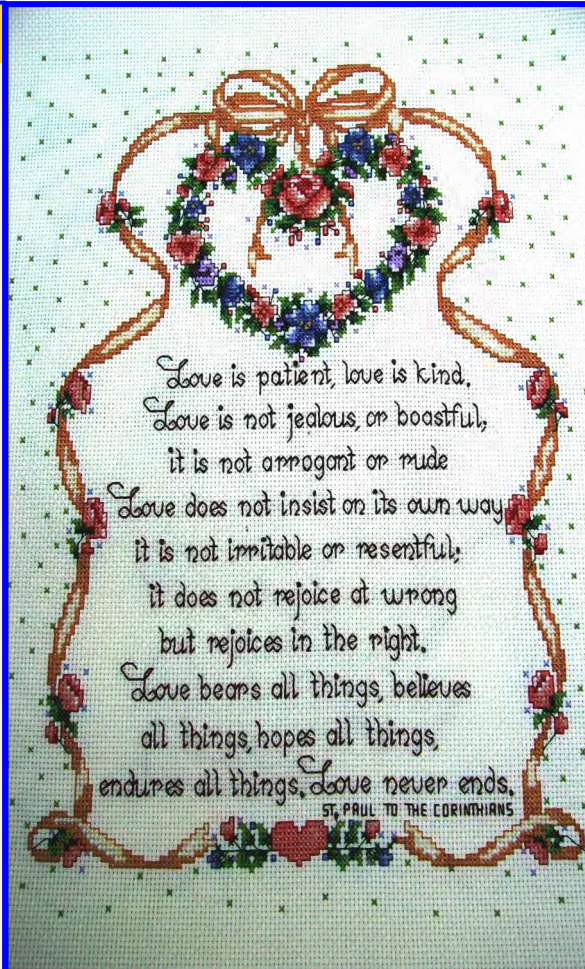 Love is patient, love is kind.
Love is not jealous, or boastful;
it is not arrogant or rude
Love does not insist on its own way
it is not irritable or resentful;
it does not rejoice at wrong
but rejoices in the right.
Love bears all things, believes
all things, hopes all things,
endures all things. Love never ends.
ST. PAUL TO THE CORINTHIANS